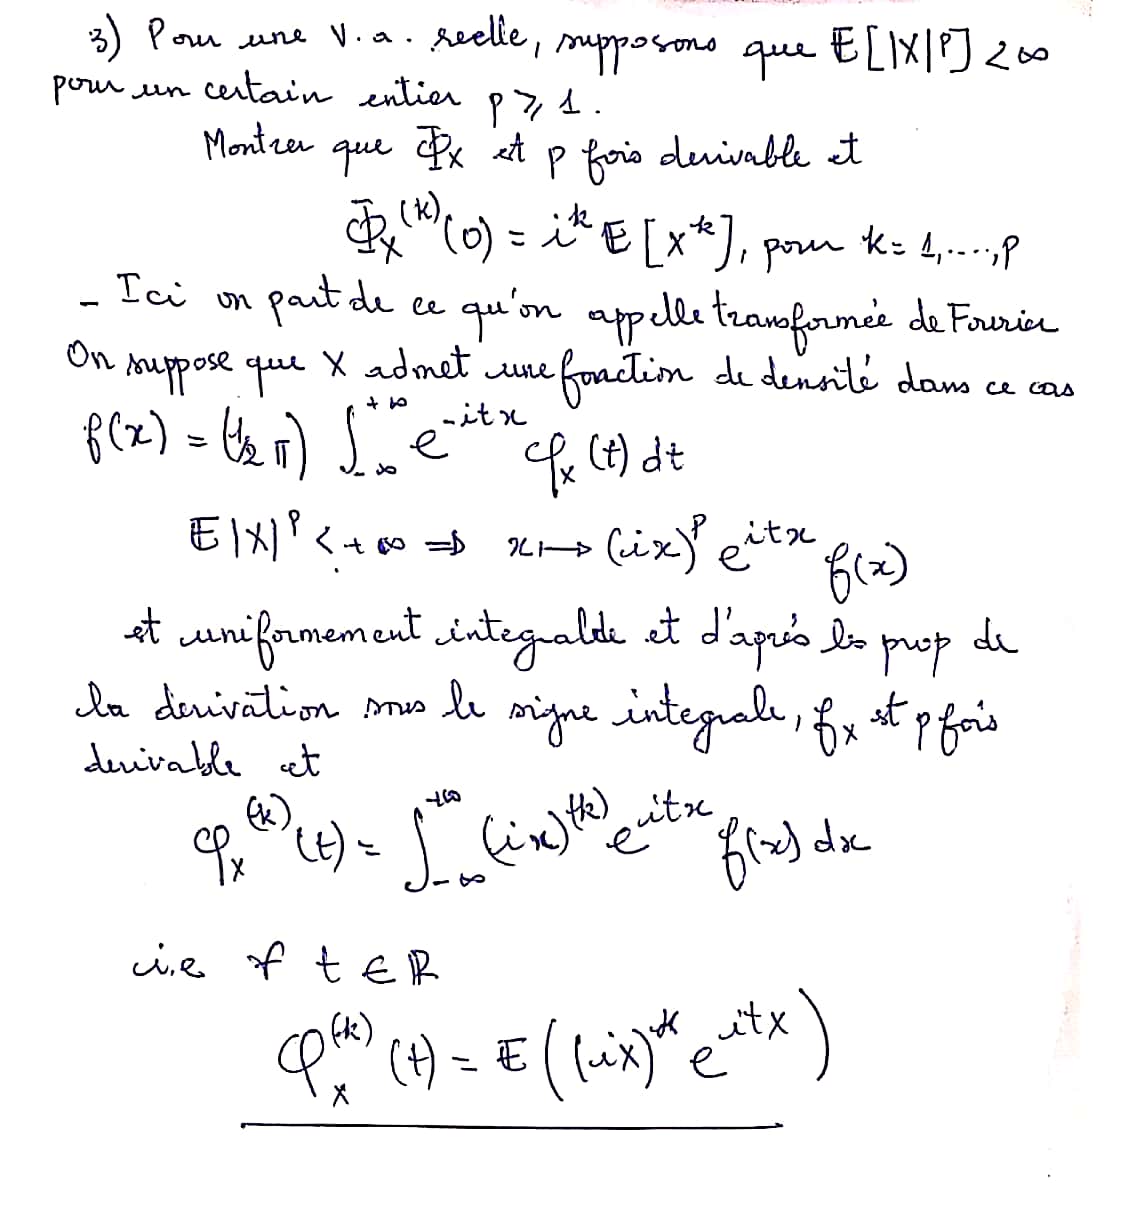 3) Pour une v.a. reelle, supposons que E[|X|^p] < ∞
pour un certain entier p ⩾ 1.
Montrer que Φ_X est p fois derivable et
Φ_X^(k)(0) = i^k E[X^k], pour k = 1,....,p
- Ici on part de ce qu'on appelle transformée de Fourier
On suppose que X admet une fonction de densité dans ce cas
f(x) = (1/2π) ∫_{-∞}^{+∞} e^{-itx} φ_X(t) dt
E|X|^p < +∞ => x ↦ (ix)^p e^{itx} f(x)
est uniformement integrable et d'après les prop de
la derivation sous le signe integrale, f_X est p fois
derivable et
φ_X^(k)(t) = ∫_{-∞}^{+∞} (ix)^(k) e^{itx} f(x) dx
i.e ∀ t ∈ R
φ_X^(k)(t) = E((iX)^k e^{itX})